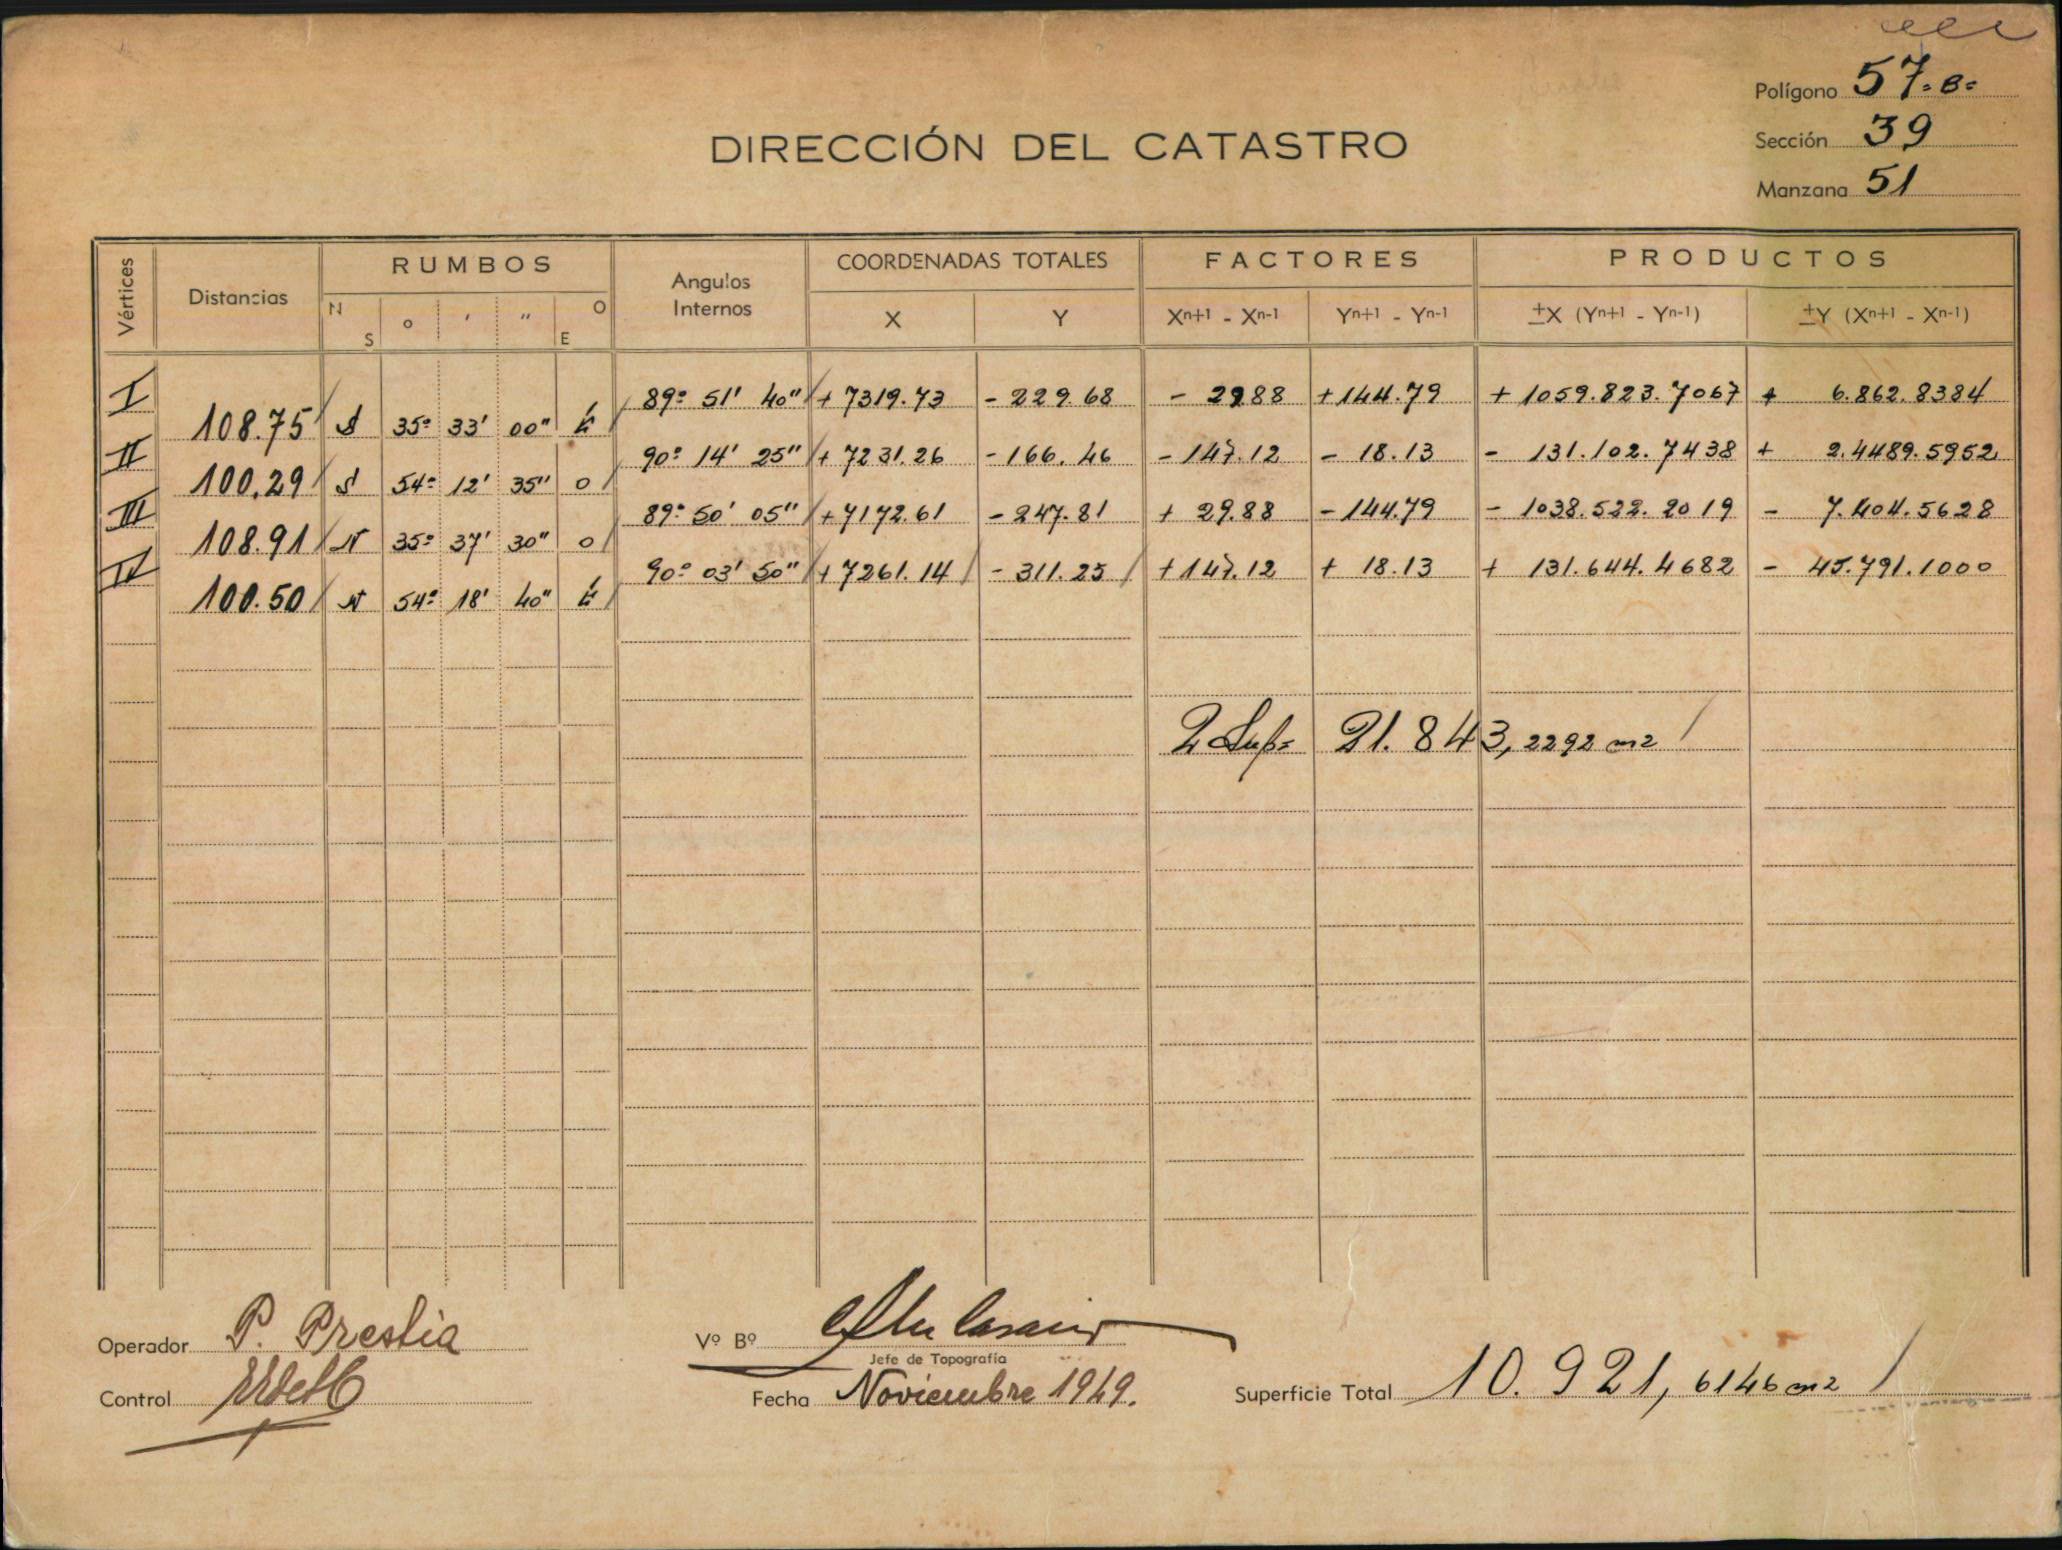 Polígono 57-B-
DIRECCIÓN DEL CATASTRO
Sección 39
Manzana 51
Vértices Distancias RUMBOS Angulos Internos COORDENADAS TOTALES FACTORES PRODUCTOS
N S o ' " O E X Y Xn+1 - Xn-1 Yn+1 - Yn-1 ±X (Yn+1 - Yn-1) ±Y (Xn+1 - Xn-1)
I 89º 51' 40" + 7319.73 - 229.68 - 29.88 +144.79 + 1059.823.7067 + 6.862.8384
108.75 S 35º 33' 00" E
II 90º 14' 25" + 7231.26 - 166.46 - 147.12 - 18.13 - 131.102.7438 + 2.4489.5952
100.29 S 54º 12' 35" O
III 89º 50' 05" + 7172.61 - 247.81 + 29.88 - 144.79 - 1038.522.2019 - 7.404.5628
108.91 N 35º 37' 30" O
IV 90º 03' 50" + 7261.14 - 311.25 + 147.12 + 18.13 + 131.644.4682 - 45.791.1000
100.50 N 54º 18' 40" E
2 Sup= 21.843,2292 m2
Operador P. Prestia Vº Bº
Jefe de Topografía
Control Fecha Noviembre 1949. Superficie Total 10.921,6146 m2